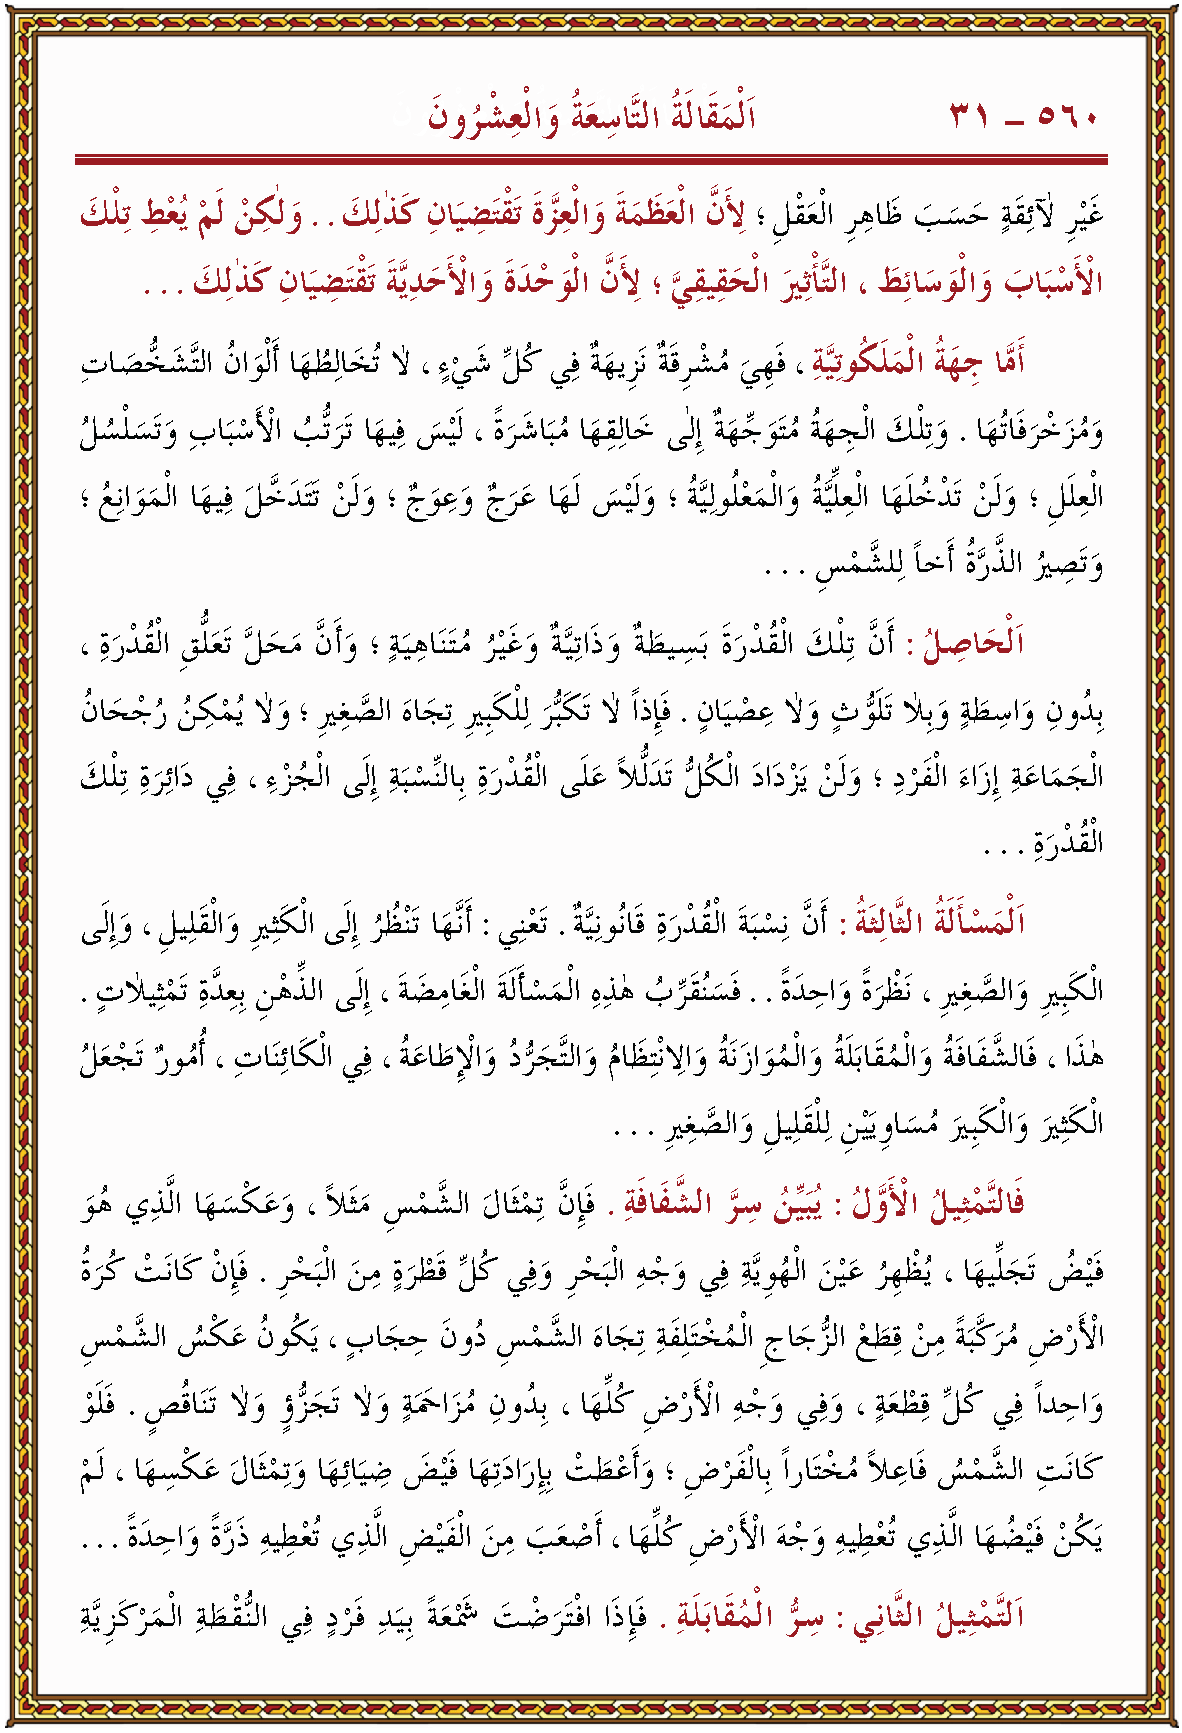 ٥٦٠ – ٣١ اَلْمَقَالَةُ التَّاسِعَةُ وَالْعِشْرُونَ
غَيْرِ لَآئِقَةٍ حَسَبَ ظَاهِرِ الْعَقْلِ ؛ لِأَنَّ الْعَظَمَةَ وَالْعِزَّةَ تَقْتَضِيَانِ كَذٰلِكَ . . وَلٰكِنْ لَمْ يُعْطِ تِلْكَ
الْأَسْبَابَ وَالْوَسَائِطَ ، التَّأْثِيرَ الْحَقِيقِيَّ ؛ لِأَنَّ الْوَحْدَةَ وَالْأَحَدِيَّةَ تَقْتَضِيَانِ كَذٰلِكَ . . .
أَمَّا جِهَةُ الْمَلَكُوتِيَّةِ ، فَهِيَ مُشْرِقَةٌ نَزِيهَةٌ فِي كُلِّ شَيْءٍ ، لَا تُخَالِطُهَا أَلْوَانُ التَّشَخُّصَاتِ
وَمُزَخْرَفَاتُهَا . وَتِلْكَ الْجِهَةُ مُتَوَجِّهَةٌ إِلٰى خَالِقِهَا مُبَاشَرَةً ، لَيْسَ فِيهَا تَرَتُّبُ الْأَسْبَابِ وَتَسَلْسُلُ
الْعِلَلِ ؛ وَلَنْ تَدْخُلَهَا الْعِلِّيَّةُ وَالْمَعْلُولِيَّةُ ؛ وَلَيْسَ لَهَا عَرَجٌ وَعِوَجٌ ؛ وَلَنْ تَتَدَخَّلَ فِيهَا الْمَوَانِعُ ؛
وَتَصِيرُ الذَّرَّةُ أَخاً لِلشَّمْسِ . . .
اَلْحَاصِلُ : أَنَّ تِلْكَ الْقُدْرَةَ بَسِيطَةٌ وَذَاتِيَّةٌ وَغَيْرُ مُتَنَاهِيَةٍ ؛ وَأَنَّ مَحَلَّ تَعَلُّقِ الْقُدْرَةِ ،
بِدُونِ وَاسِطَةٍ وَبِلَا تَلَوُّثٍ وَلَا عِصْيَانٍ . فَإِذاً لَا تَكَبُّرَ لِلْكَبِيرِ تِجَاهَ الصَّغِيرِ ؛ وَلَا يُمْكِنُ رُجْحَانُ
الْجَمَاعَةِ إِزَاءَ الْفَرْدِ ؛ وَلَنْ يَزْدَادَ الْكُلُّ تَدَلُّلاً عَلَى الْقُدْرَةِ بِالنِّسْبَةِ إِلَى الْجُزْءِ ، فِي دَائِرَةِ تِلْكَ
الْقُدْرَةِ . . .
اَلْمَسْأَلَةُ الثَّالِثَةُ : أَنَّ نِسْبَةَ الْقُدْرَةِ قَانُونِيَّةٌ . تَعْنِي : أَنَّهَا تَنْظُرُ إِلَى الْكَثِيرِ وَالْقَلِيلِ ، وَإِلَى
الْكَبِيرِ وَالصَّغِيرِ ، نَظْرَةً وَاحِدَةً . . فَسَنُقَرِّبُ هٰذِهِ الْمَسْأَلَةَ الْغَامِضَةَ ، إِلَى الذِّهْنِ بِعِدَّةِ تَمْثِيلَاتٍ .
هٰذَا ، فَالشَّفَافَةُ وَالْمُقَابَلَةُ وَالْمُوَازَنَةُ وَالِانْتِظَامُ وَالتَّجَرُّدُ وَالْإِطَاعَةُ ، فِي الْكَائِنَاتِ ، أُمُورٌ تَجْعَلُ
الْكَثِيرَ وَالْكَبِيرَ مُسَاوِيَيْنِ لِلْقَلِيلِ وَالصَّغِيرِ . . .
فَالتَّمْثِيلُ الْأَوَّلُ : يُبَيِّنُ سِرَّ الشَّفَافَةِ . فَإِنَّ تِمْثَالَ الشَّمْسِ مَثَلاً ، وَعَكْسَهَا الَّذِي هُوَ
فَيْضُ تَجَلِّيهَا ، يُظْهِرُ عَيْنَ الْهُوِيَّةِ فِي وَجْهِ الْبَحْرِ وَفِي كُلِّ قَطْرَةٍ مِنَ الْبَحْرِ . فَإِنْ كَانَتْ كُرَةُ
الْأَرْضِ مُرَكَّبَةً مِنْ قِطَعْ الزُّجَاجِ الْمُخْتَلِفَةِ تِجَاهَ الشَّمْسِ دُونَ حِجَابٍ ، يَكُونُ عَكْسُ الشَّمْسِ
وَاحِداً فِي كُلِّ قِطْعَةٍ ، وَفِي وَجْهِ الْأَرْضِ كُلِّهَا ، بِدُونِ مُزَاحَمَةٍ وَلَا تَجَزُّؤٍ وَلَا تَنَاقُصٍ . فَلَوْ
كَانَتِ الشَّمْسُ فَاعِلاً مُخْتَاراً بِالْفَرْضِ ؛ وَأَعْطَتْ بِإِرَادَتِهَا فَيْضَ ضِيَائِهَا وَتِمْثَالَ عَكْسِهَا ، لَمْ
يَكُنْ فَيْضُهَا الَّذِي تُعْطِيهِ وَجْهَ الْأَرْضِ كُلِّهَا ، أَصْعَبَ مِنَ الْفَيْضِ الَّذِي تُعْطِيهِ ذَرَّةً وَاحِدَةً . . .
اَلتَّمْثِيلُ الثَّانِي : سِرُّ الْمُقَابَلَةِ . فَإِذَا افْتَرَضْتَ شَمْعَةً بِيَدِ فَرْدٍ فِي النُّقْطَةِ الْمَرْكَزِيَّةِ